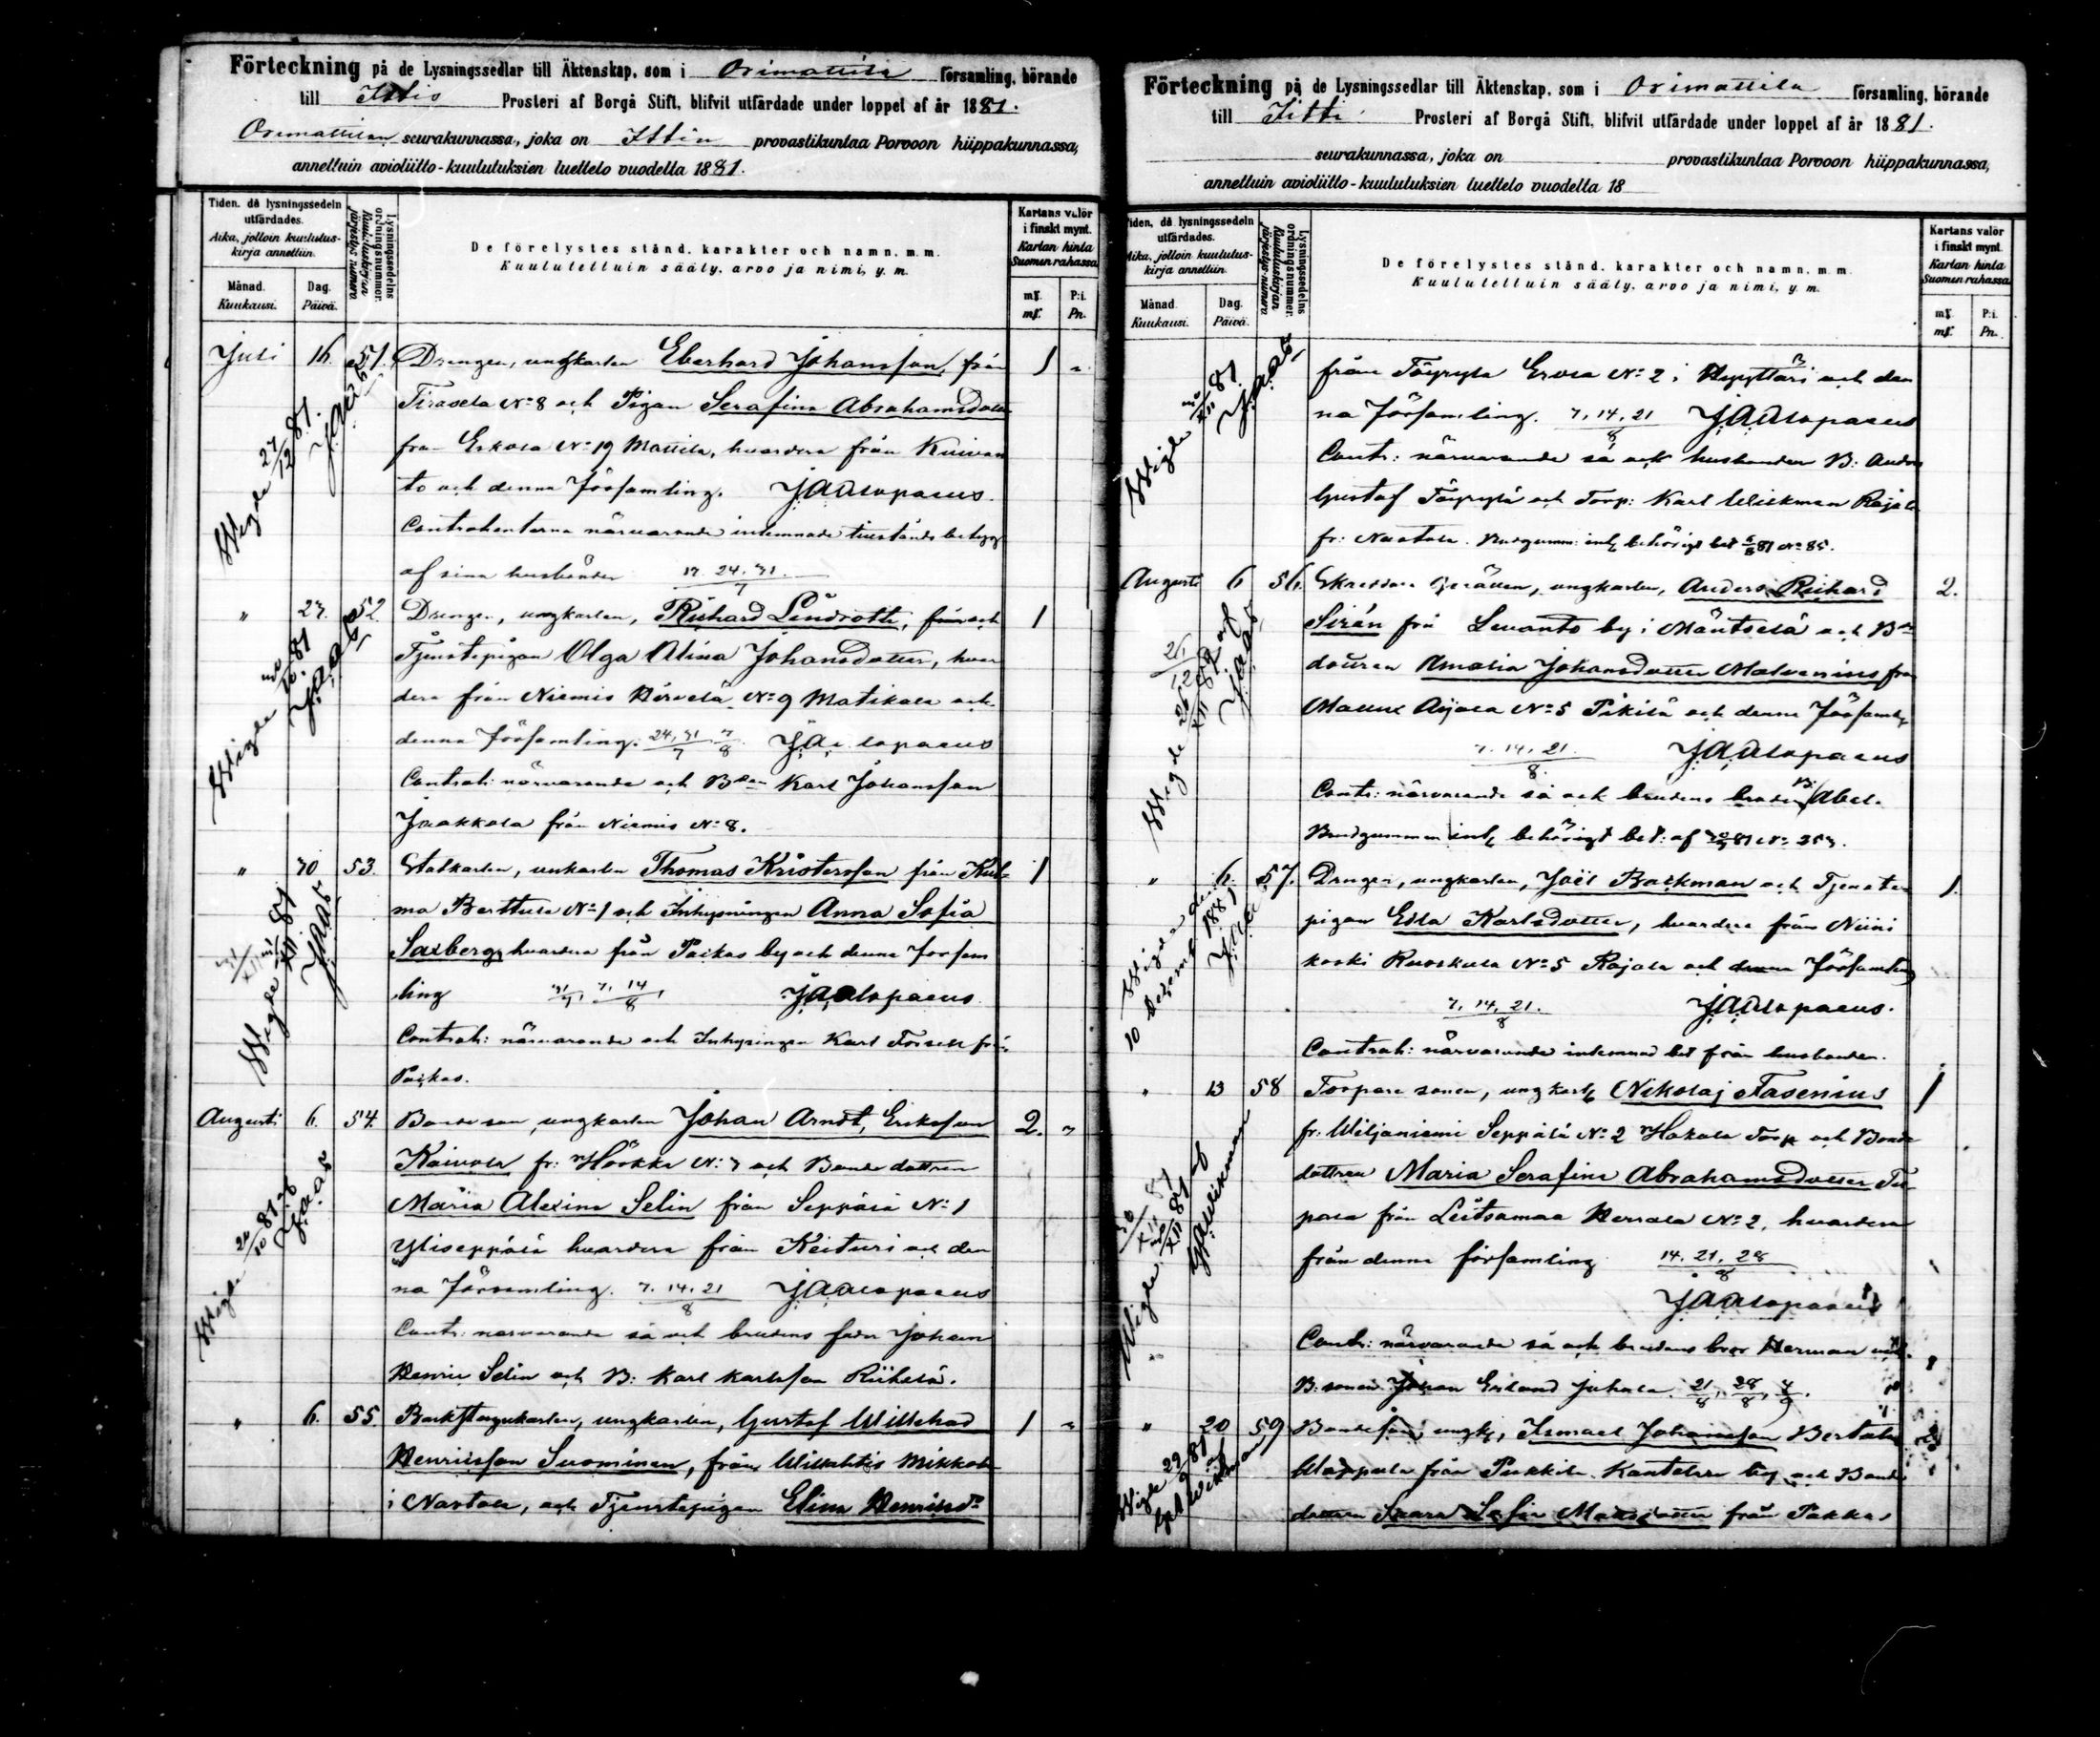 Förteckning på de Lysningssedlar till Äktenskap, som i Orimattila församling, hörande
till Ittis Prosteri af Borgå Stift, blifvit utfärdade under loppet af år 1881.
Orimattilan seurakunnassa, joka on Ittin provastikuntaa Porvoon hiippakunnassa,
annettuin avioliitto-kuulutuksien luettelo vuodella 1881.
Tiden, då lysningssedeln utfärdades.
Aika, jolloin kuulutus-kirja annettiin.
Månad. Kuukausi.
Dag. Päivä.
Lysningssedelns ordningsnummer.
Kuulutuskirjan järjestys-numero
De förelystes stånd, karakter och namn, m. m.
Kuulutelluin sääty, arvo ja nimi, y. m.
Kartans valör i finskt mynt.
Kartan hinta Suomen rahassa
mf. mf. P:i. Pn.
Juli 16. 51. Drengen, ungkarlen Eberhard Johansson, från 1 "
Tirasela No 8 och Pigan Serafina Abrahamsdotter
från Erkola No 19 Mattila, hvardera från Kuivan
to och denna församling. J A Alopaeus
Contrahenterna närvarande inlemnade tillstånds betyg
af sina husbönder 17. 24. 31. / 7
Wigde 27/12 81. JAAls
" 23. 52. Drengen, ungkarlen, Richard Lindroth, från och 1
Tjenstepigan Olga Alina Johansdotter, hvar
dera från Niemis Hirvelä No 9 Matikala och
denna församling. 24. 31 / 7 7 / 8 J A Alopaeus
Contrah: närvarande och Bden Karl Johansson
Jaakkola från Niemis No 8.
" 30 53. Statkarlen, unkarlen Thomas Kristersson från Kul 1
ma Berttula No 1 och Inhysningen Anna Sofia
Saxberg, hvardera från Paikas by och denna forsam
ling 31/7, 7. 14 / 8 J A Alopaeus
Contrah: närvarande och Inhysingen Karl Forsell från
Paikas.
Augusti 6. 54. Bondeson, ungkarlen Johan Arndt, Eriksson 2. "
Kaivola fr: Hörkkä No 3 och Bonde dottren
Maria Alexina Selin från Seppälä No 1
Yliseppälä hvardera från Keituri och den
na församling. 7. 14. 21 / 8 J A Alopaeus
Contr: närvarande så och brudens fader Johan
Henric Selin och B: Karl Karlsson Riihelä.
" 6. 55. Backstugukarlen, ungkarlen, Gustaf Willehad 1 "
Henricsson Suominen, från Mikkola
i Nastola, och Tjenstepigan Elina Henricsdr
Förteckning på de Lysningssedlar till Äktenskap, som i Orimattila församling, hörande
till Iitti Prosteri af Borgå Stift, blifvit utfärdade under loppet af år 1881.
seurakunnassa, joka on provastikuntaa Porvoon hiippakunnassa,
annettuin avioliitto-kuulutuksien luettelo vuodella 18
Tiden, då lysningssedeln utfärdades.
Aika, jolloin kuulutus-kirja annettiin.
Månad. Kuukausi.
Dag. Päivä.
Lysningssedelns ordningsnummer.
Kuulutuskirjan järjestys-numero
De förelystes stånd, karakter och namn, m. m.
Kuulutelluin sääty, arvo ja nimi, y. m.
Kartans valör i finskt mynt.
Kartan hinta Suomen rahassa
mf. mf. P:i. Pn.
från Töyrylä Erola No 2 i och den
na församling. 7. 14. 21 / 8 J A Alopaeus
Contr: närvarande så och husbonden B: Anders
Gustaf Töyrylä och Torp: Karl Wickman Rajala
fr: Nastola. Brudgumm: behörigt bet No 85.
Augusti 6 56. ungkarlen, Anders Richard 2.
Sirén från Levanto by i Mäntsälä och Bde
dottren Amalia Johansdotter Malvenius från
Arjala No 5 Pikilä och denna församl
7. 14. 21. / 8. J A Alopaeus
Contr: närvarande så och brudens broder B: Abel.
Brudgummen behörigt bet: af
" 6. 57. Drengen, ungkarlen, Joël Backman och Tjenste 1.
pigan Edla Karlsdotter, hvardera från Niini
koski Ruoskula No 5 Rajala och denna församling
7. 14. 21. / 8 J A Alopaeus.
Contrah: närvarande inlemnad bet från husbonden.
" 13 58 Torpare sonen, ungkarl Nikolaj Fasenius 1
fr: Wiljaniemi Seppälä No 2 Hakala Torp och Bonde
dottren Maria Serafina Abrahamsdotter
från Leitsamaa Herrala No 2, hvardera
från denna församling 14. 21. 28 / 8
J A Alopaeus
Contr: närvarande så och brudens bror Herman
B: sonen Johan Erland Juhola. 21/8, 28/8, 4/9.
" 20 59 Bondeson, ungk, Ismael Johansson Bertula
från Pukkila Kantelen by och Bonde
dottren Saara Sofia Mattsdotter från Pakka